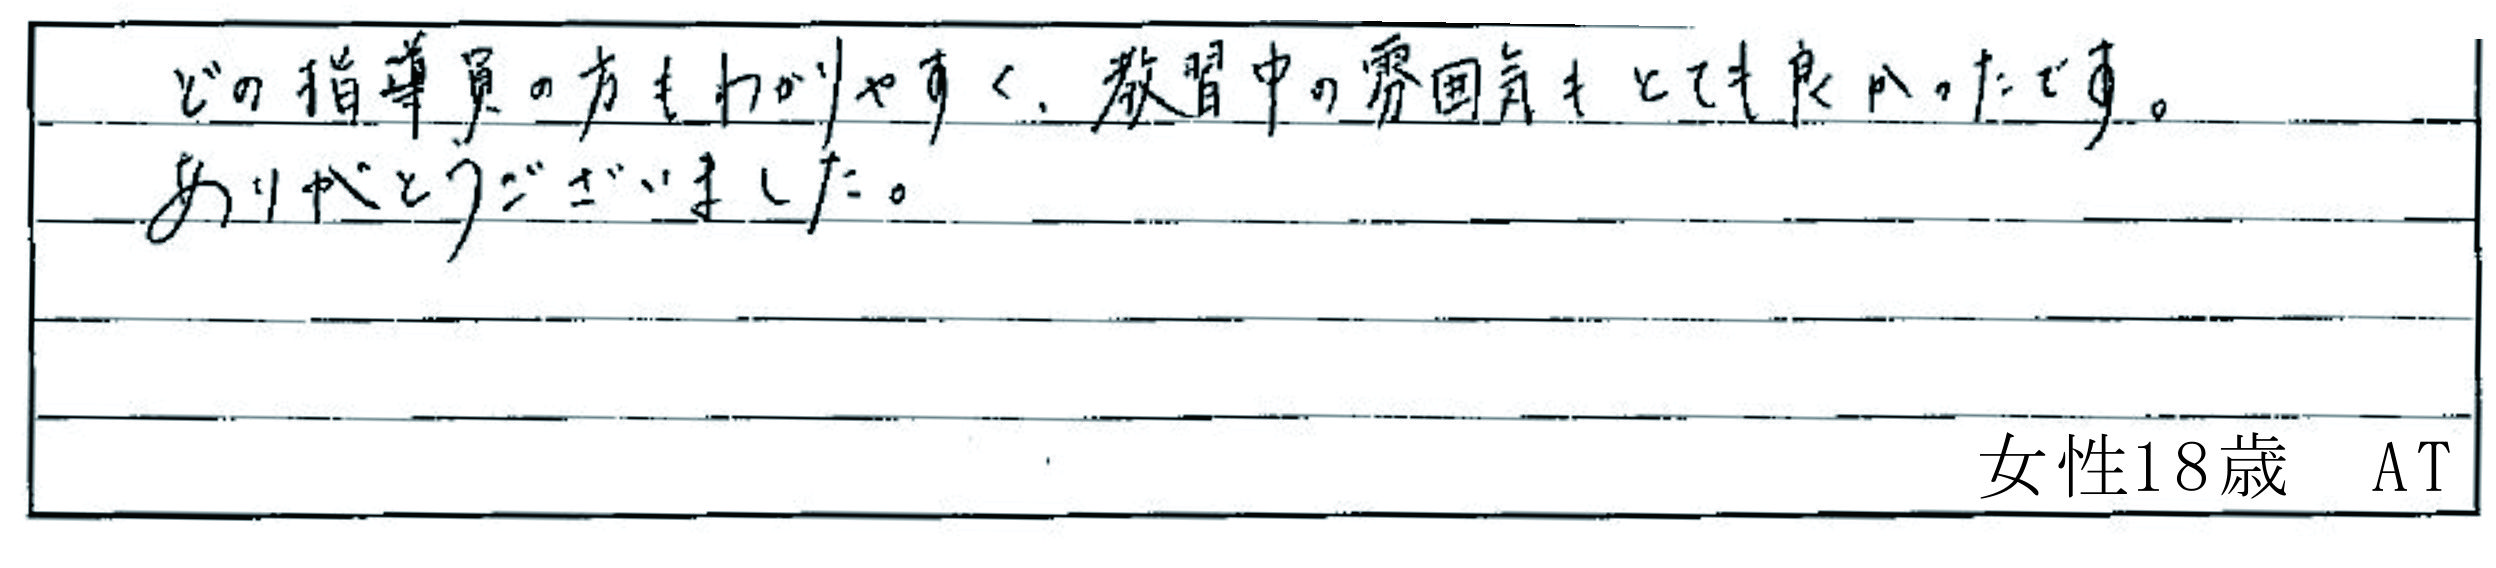 どの指導員の方もわかりやすく、教習中の雰囲気もとても良かったです。
ありがとうございました。
女性18歳　AT